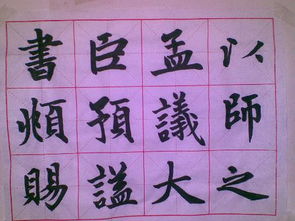 以師之
孟議大
臣預謚
書頫賜